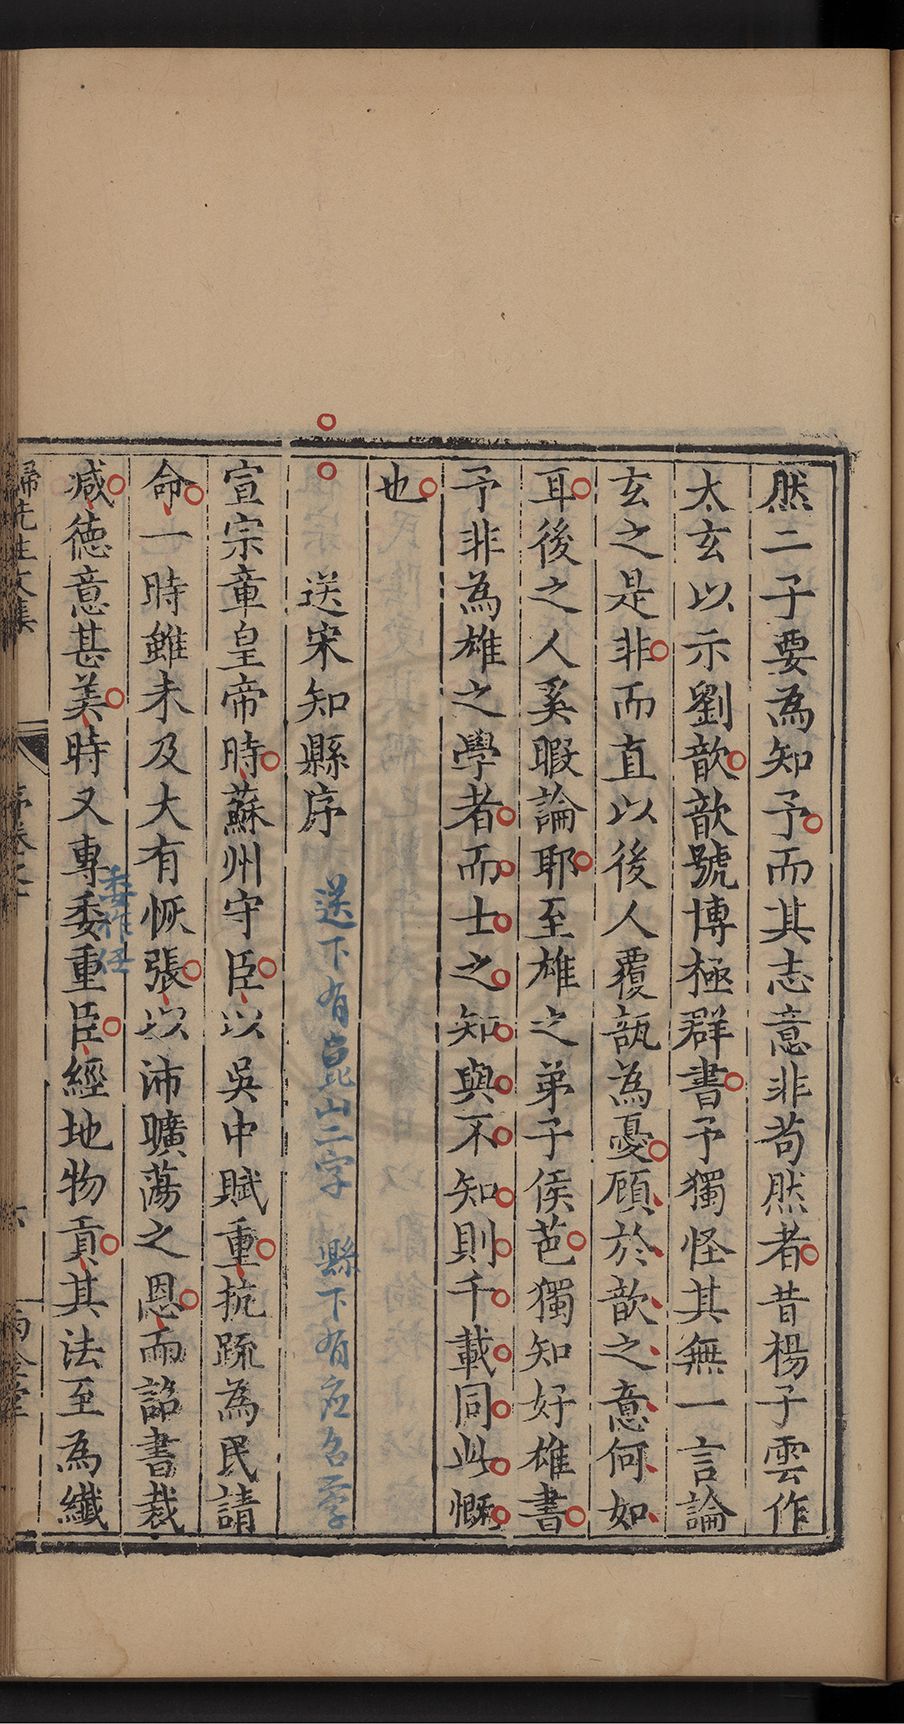 然二子要為知予而其志意非苟然者昔楊子雲作
太玄以示劉歆歆號博極群書予獨怪其無一言論
玄之是非而直以後人覆瓿為憂顧於歆之意何如
耳後之人奚暇論耶至雄之弟子侯芭獨知好雄書
予非為雄之學者而士之知與不知則千載同此慨
也
送宋知縣序
送下有崑山二字
縣下有应召字
宣宗章皇帝時蘇州守臣以吳中賦重抗疏為民請
命一時雖未及大有恢張以沛曠蕩之恩而詔書裁
減德意甚美時又專委重臣經地物貢其法至為纖
委作任
歸先生文集
序卷之
六